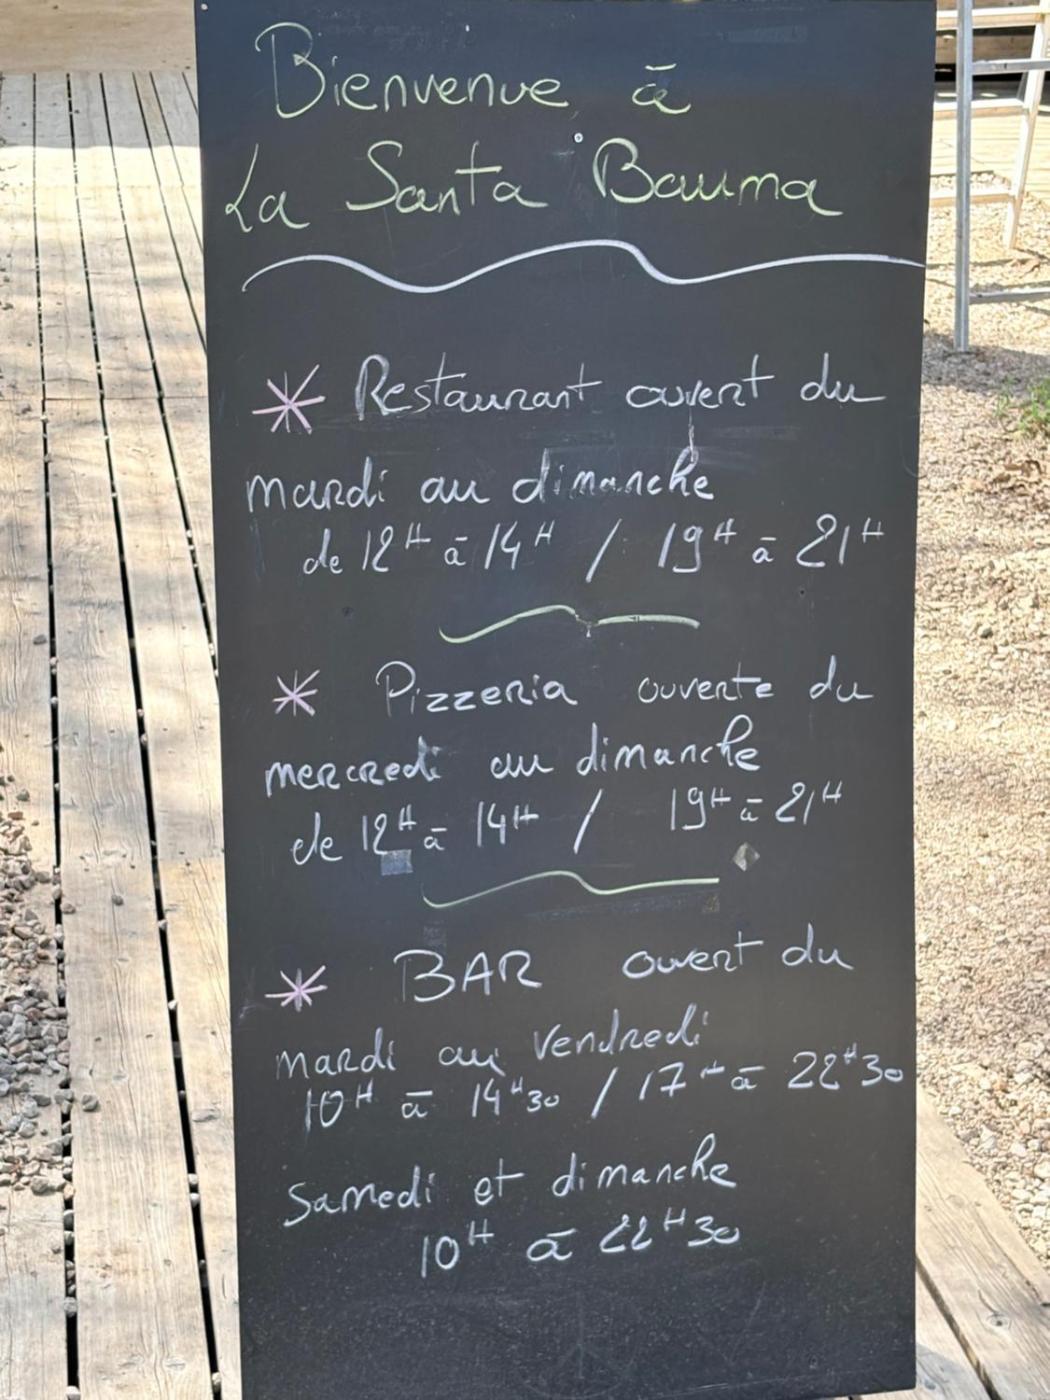 Bienvenue à
La Santa Bauma
* Restaurant ouvert du
mardi au dimanche
de 12H à 14H / 19H à 21H
* Pizzeria ouverte du
mercredi au dimanche
de 12H à 14H / 19H à 21H
* BAR ouvert du
mardi au vendredi
10H à 14H30 / 17H à 22H30
Samedi et dimanche
10H à 22H30